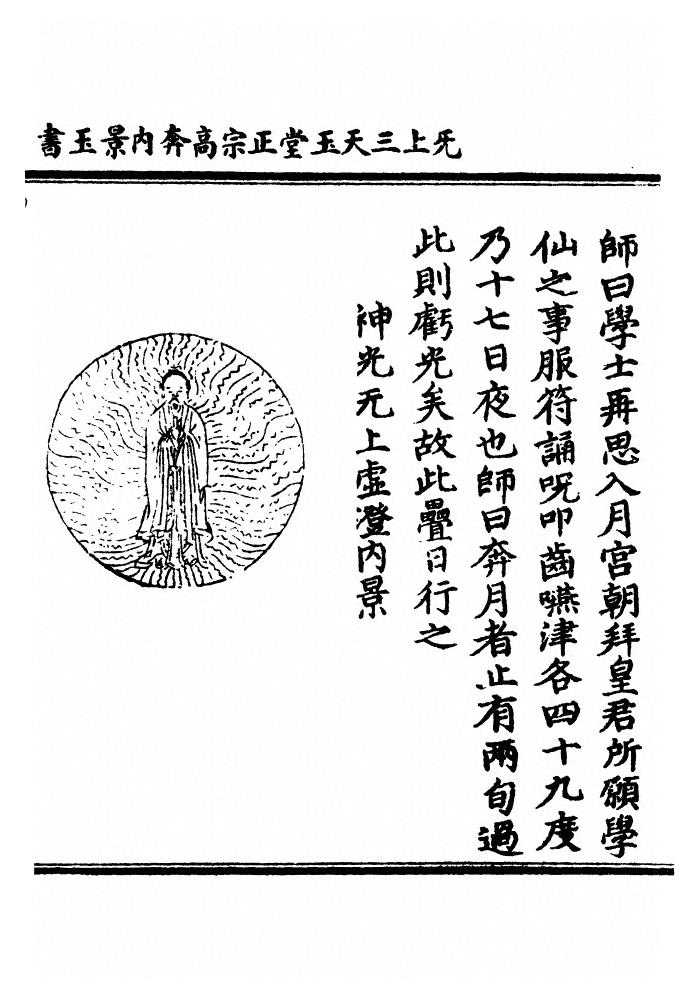 无上三天玉堂正宗高奔内景玉書
師曰學士再思入月宫朝拜皇君所願學
仙之事服符誦呪叩齒嚥津各四十九度
乃十七日夜也師曰奔月者止有兩旬過
此則虧光矣故此疊日行之
神光无上虚澄内景